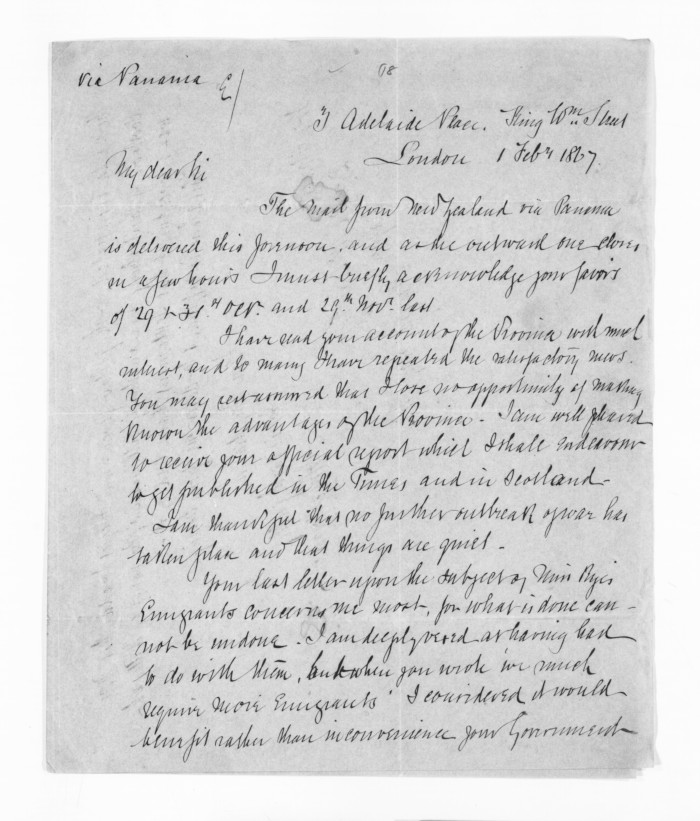 via Panama E/
3 Adelaide Place. King Wm Street
London 1 Feby 1867.
My dear Sir
The Mail from New Zealand via Panama
is delivered this forenoon, and as the outward one closes
in a few hours I must briefly acknowledge your favors
of 29 & 31st Octr. and 29th Novr. last
I have read your account of the Province with much
interest, and to many I have repeated the satisfactory news.
You may rest assured that I lose no opportunity of making
known the advantages of the Province. I am well pleased
to receive your official report which I shall endeavour
to get published in the Times and in Scotland.
I am thankful that no further outbreak of war has
taken place and that things are quiet.
Your last letter upon the subject of Miss Rye's
Emigrants concerns me most, for what is done can-
not be undone. I am deeply vexed at having had
to do with them, but when you wrote 'we much
require more Emigrants' I considered it would
benefit rather than inconvenience your Government